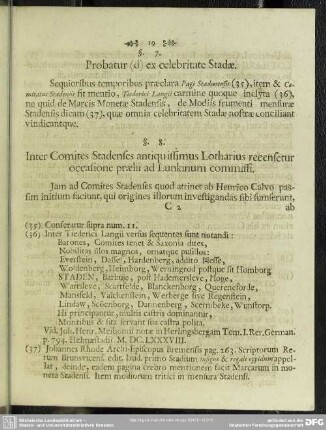 19
§. 7.
Probatur (d) ex celebritate Stadæ.
Sequioribus temporibus præclara Pagi Stadunensis (35), item & Co-
mitatus Stadensis fit mentio, Tiederici Langii carmine quoque inclyta (36),
ne quid de Marcis Monetæ Stadensis, de Modiis frumenti mensuræ
Stadensis dicam (37), quæ omnia celebritatem Stadæ nostræ conciliant
vindicantque.
§. 8.
Inter Comites Stadenses antiquissimus Lotharius recensetur
occasione prælii ad Lunkinum commissi.
Jam ad Comites Stadenses quod attinet ab Henrico Calvo pas-
sim initium faciunt, qui origines illorum investigandas sibi sumserunt,
C 2 ab
(35) Conferatur supra num. 11.
(36) Inter Tiederici Langii versus sequentes sunt notandi:
Barones, Comites tenet & Saxonia dites,
Nobilitas illos magnos, ornatque pusillos:
Everstein, Dassle, Hardenberg, addito Blesse,
Woldenberg, Helmborg, Werningrod postque sit Homborg
STADEN, Barbuje, post Hademersleve, Hoge,
Warsleve, Scartfelde, Blanckenborg, Querenforde,
Mansfeld, Valckenstein, Werberge sive Regenstein,
Lindaw, Scenborg, Dannenberg, Sternibeke, Wunstorp.
Hi principantur, multis castris dominantur,
Montibus & sita servant sua castra polita.
Vid. Joh. Henr. Meibomii notæ in Herlingsbergam Tom. I. Rer. German.
p. 794. Helmæstadii M. DC. LXXXVIII.
(37) Johannes Rhode Archi-Episcopus Bremensis pag. 263. Scriptorum Re-
rum Brunsvicens. edit. Stud. primo Stadium insigne & regale oppidum appel-
lat, deinde, eadem pagina crebro mentionem facit Marcarum in mo-
neta Stadensi. Item modiorum tritici in mensura Stadensi.